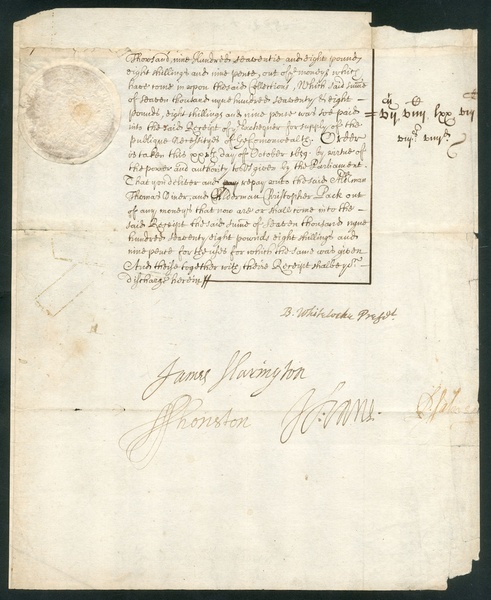 Thousand, nine hundred seaventie and eight pounds
eight shillings and nine pence, out of yᵉ moneys which
have come in upon the said Collections, Which said summe
of seaven thousand nyne hundred seaventy & eight
pounds, eight shillings and nine pence was soe paid
into the said Receipt of yᵉ Exchequer for supply of the
publique necessities of yᵉ Comonwealth. Order
is taken this day of October 1659 by vertue of
the power and authority to us given by the Parliament.
That you deliver and repay unto the said Alderman
Thomas Viner, and Alderman Christopher Pack out
of any moneys that now are or shall come into the
said Receipt the said sume of seaven thousand nyne
hundred seaventy eight pounds eight shillings and
nine pence for the uses for which the same was given
And theise together with theire Receipt shalbe yoʳ
discharge herein
vij viij lxx viij
viijˢ viiijᵈ
B: Whitelocke Presᵈᵗ
James Harington
JThonston